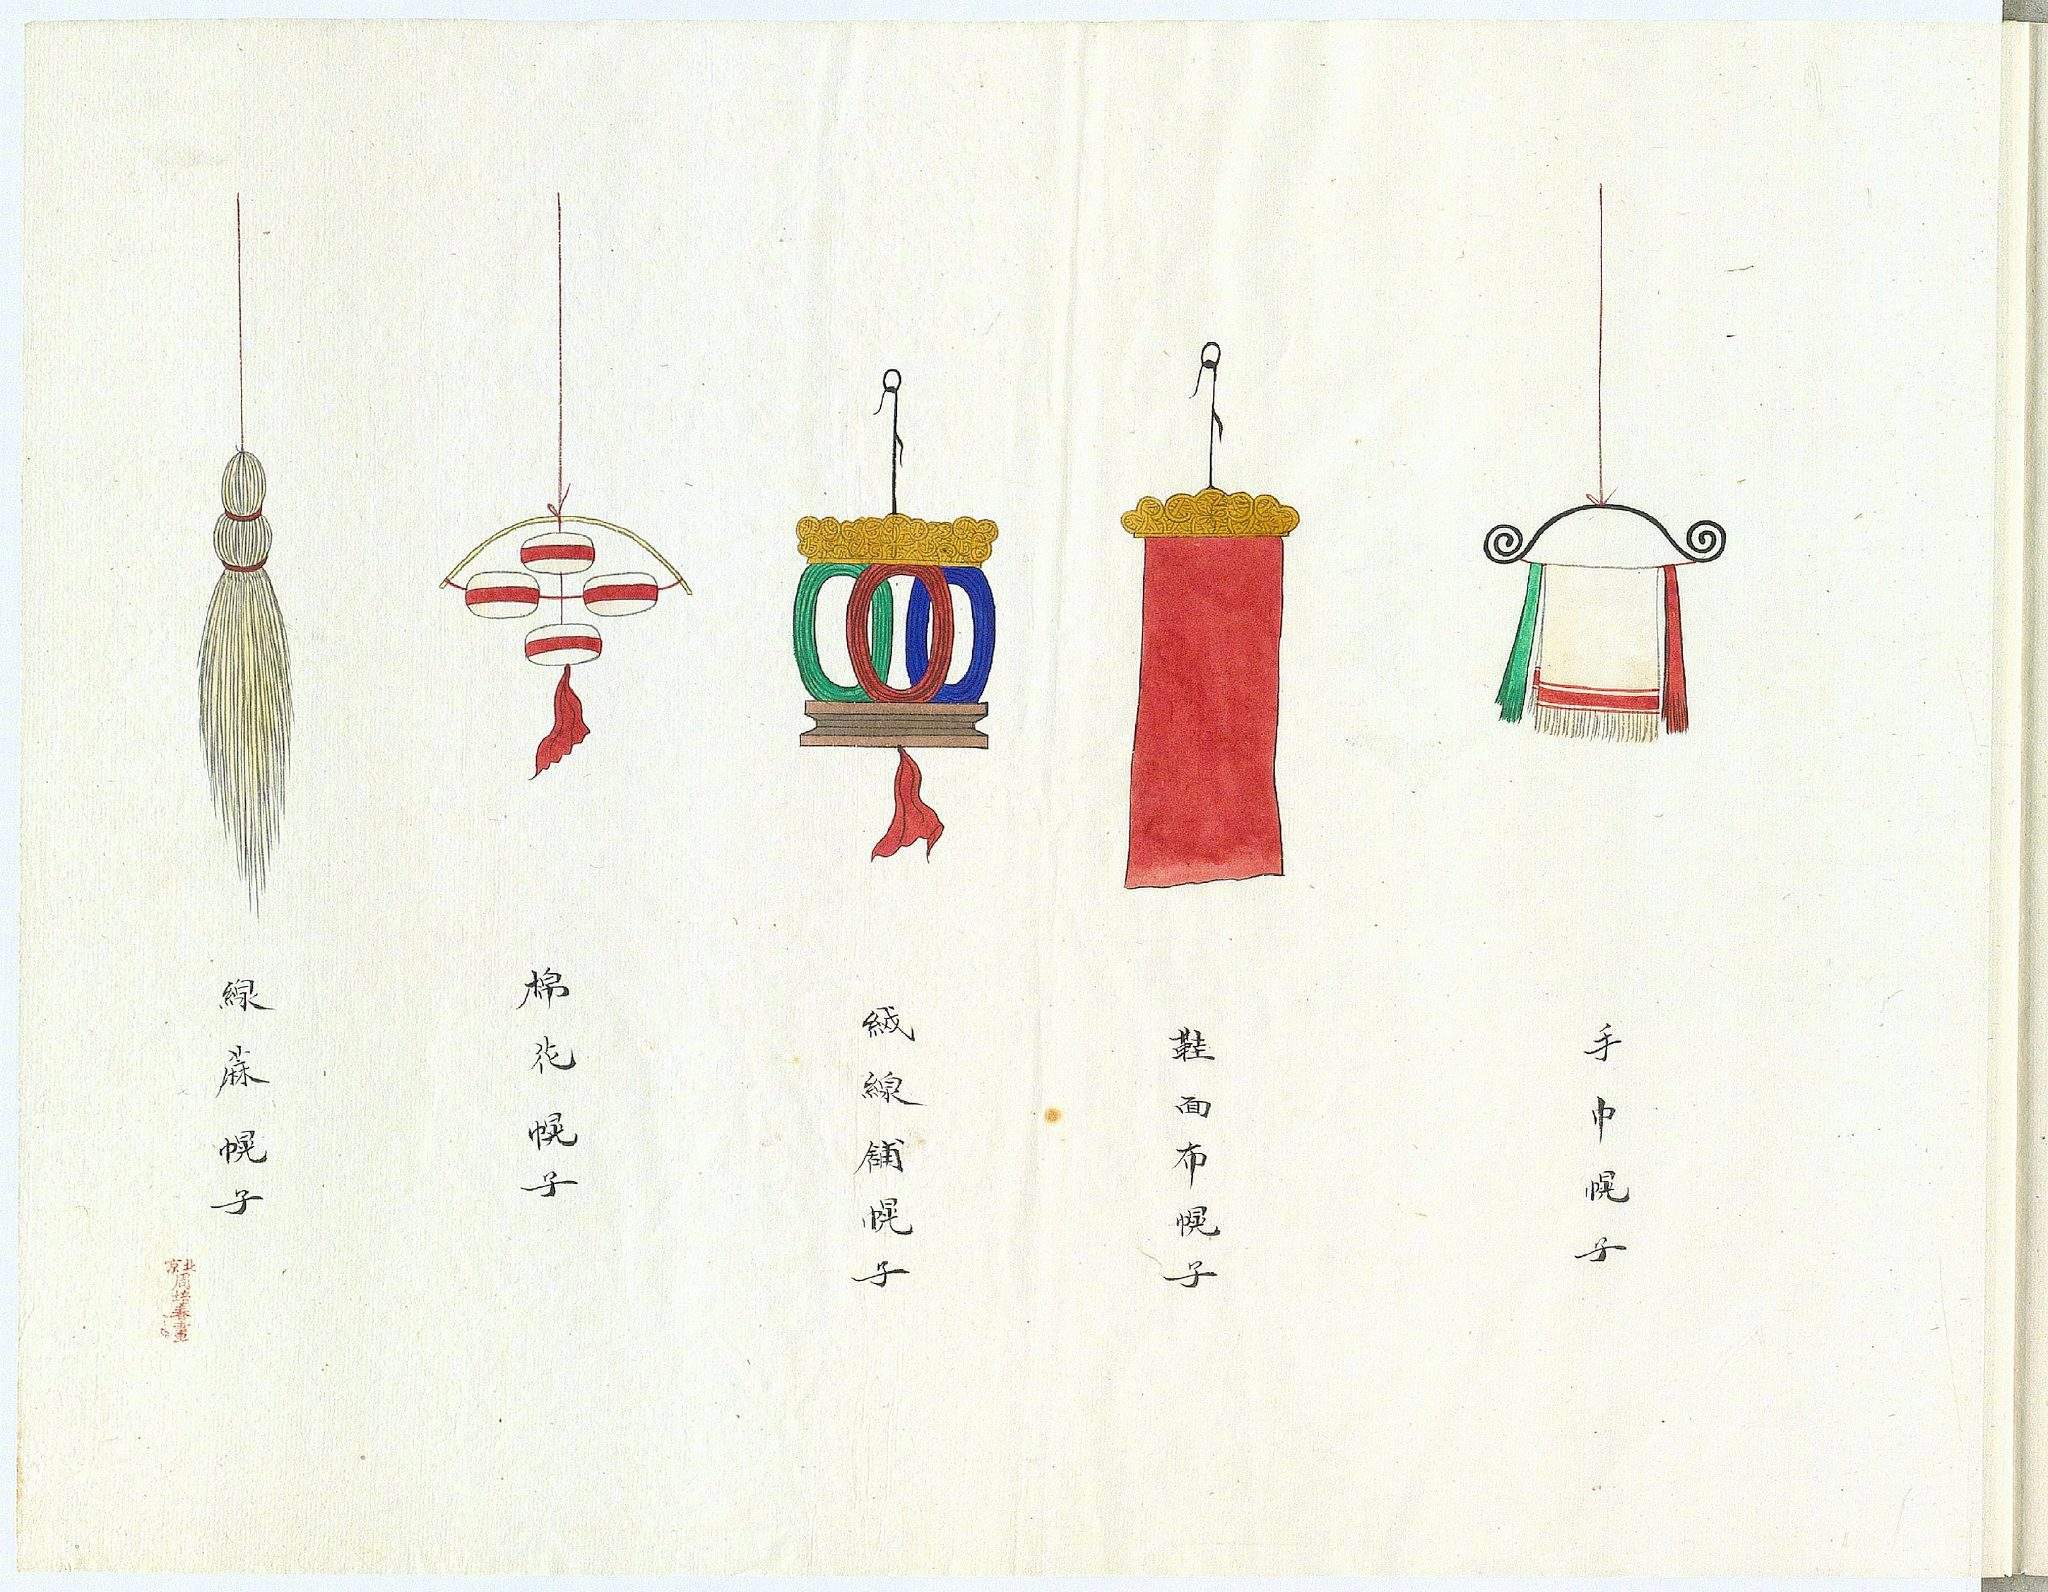 手巾幌子
鞋面布幌子
絨線舖幌子
棉花幌子
線蔴幌子
北京
周培春畫